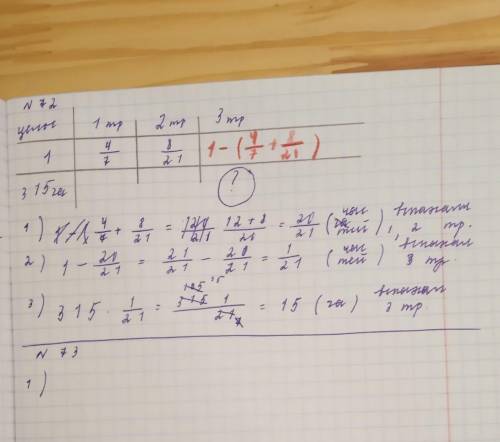 N 72
целое 1 тр 2 тр 3 тр
1 4/7 8/21 1 - (4/7 + 8/21)
315 га ?
1) 4/7 + 8/21 = 12+8/21 = 20/21 (час тей) вспахали 1, 2 тр.
2) 1 - 20/21 = 21/21 - 20/21 = 1/21 (час тей) вспахал 3 тр.
3) 315 · 1/21 = 315 · 1/21 = 15 (га) вспахал 3 тр.
N 73
1)